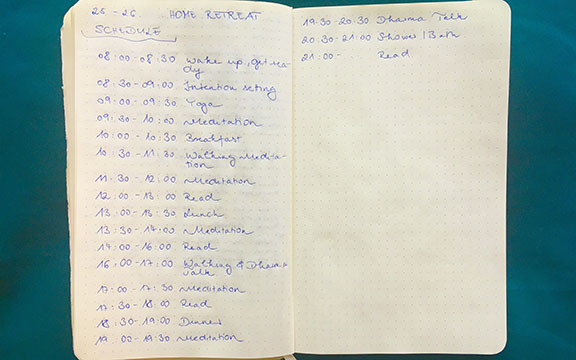 25 - 26 HOME RETREAT
SCHEDULE
08:00 - 08:30 wake up, get rea-
dy
08:30 - 09:00 Intention setting
09:00 - 09:30 Yoga
09:30 - 10:00 Meditation
10:00 - 10:30 Breakfast
10:30 - 11:30 Walking Medita-
tion
11:30 - 12:00 Meditation
12:00 - 13:00 Read
13:00 - 13:30 Lunch
13:30 - 14:00 Meditation
14:00 - 16:00 Read
16:00 - 17:00 Walking & Dharma
talk
17:00 - 17:30 Meditation
17:30 - 18:00 Read
18:30 - 19:00 Dinner
19:00 - 19:30 Meditation
19:30 - 20:30 Dharma Talk
20:30 - 21:00 Shower / Bath
21:00 - . Read